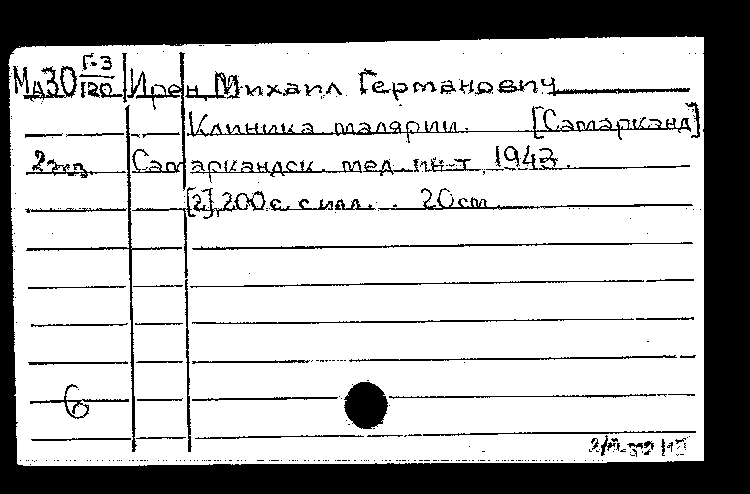 МД30 Г-3/120 Ирен, Михаил Германович
Клиника малярии. [Самарканд]
2 экз. Самаркандск. мед. ин-т, 1943.
[2], 200 с. с илл. . 20 см.
6